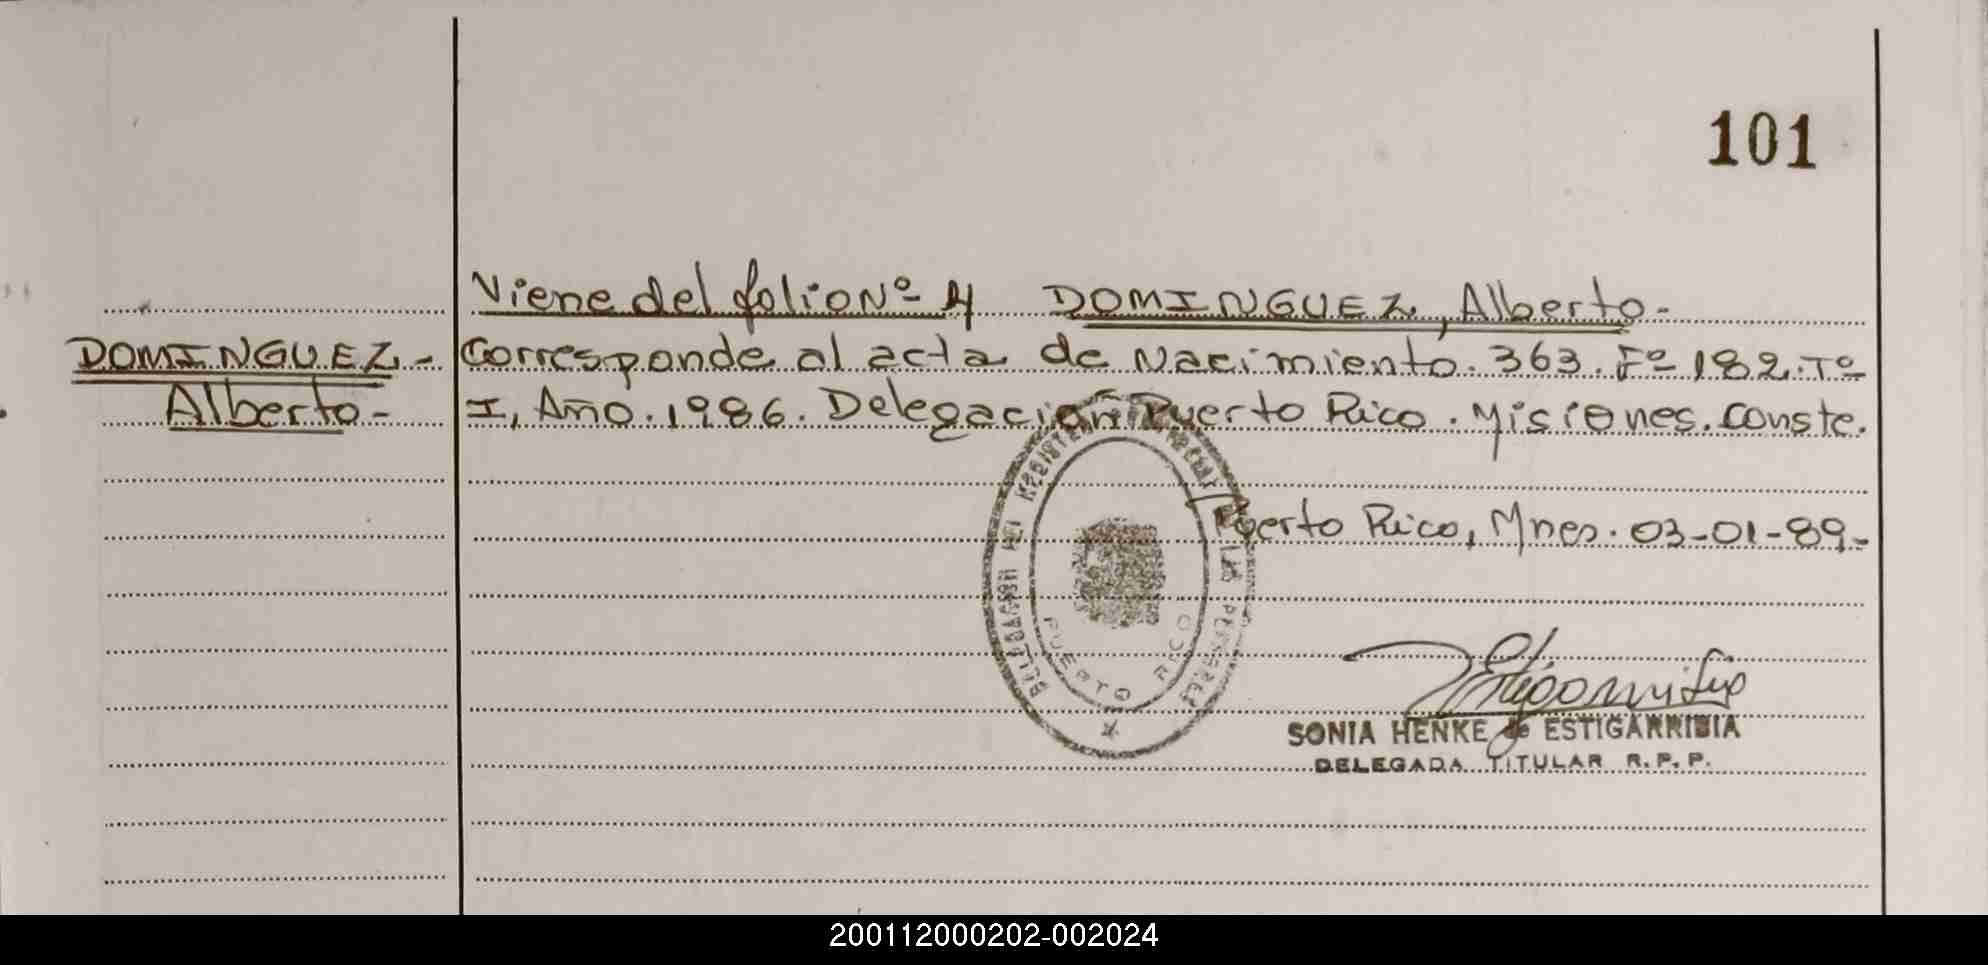 101
Viene del folio Nº 4 DOMINGUEZ, Alberto-
DOMINGUEZ-
Alberto-
Corresponde al acta de Nacimiento. 363. Fº 182. Tº
I, Año. 1986. Delegación Puerto Rico. Misiones. Conste.
Puerto Rico, Mnes. 03-01-89-
DELEGACION DEL REGISTRO
PUERTO RICO
SONIA HENKE de ESTIGARRIBIA
DELEGADA TITULAR R.P.P.
200112000202-002024